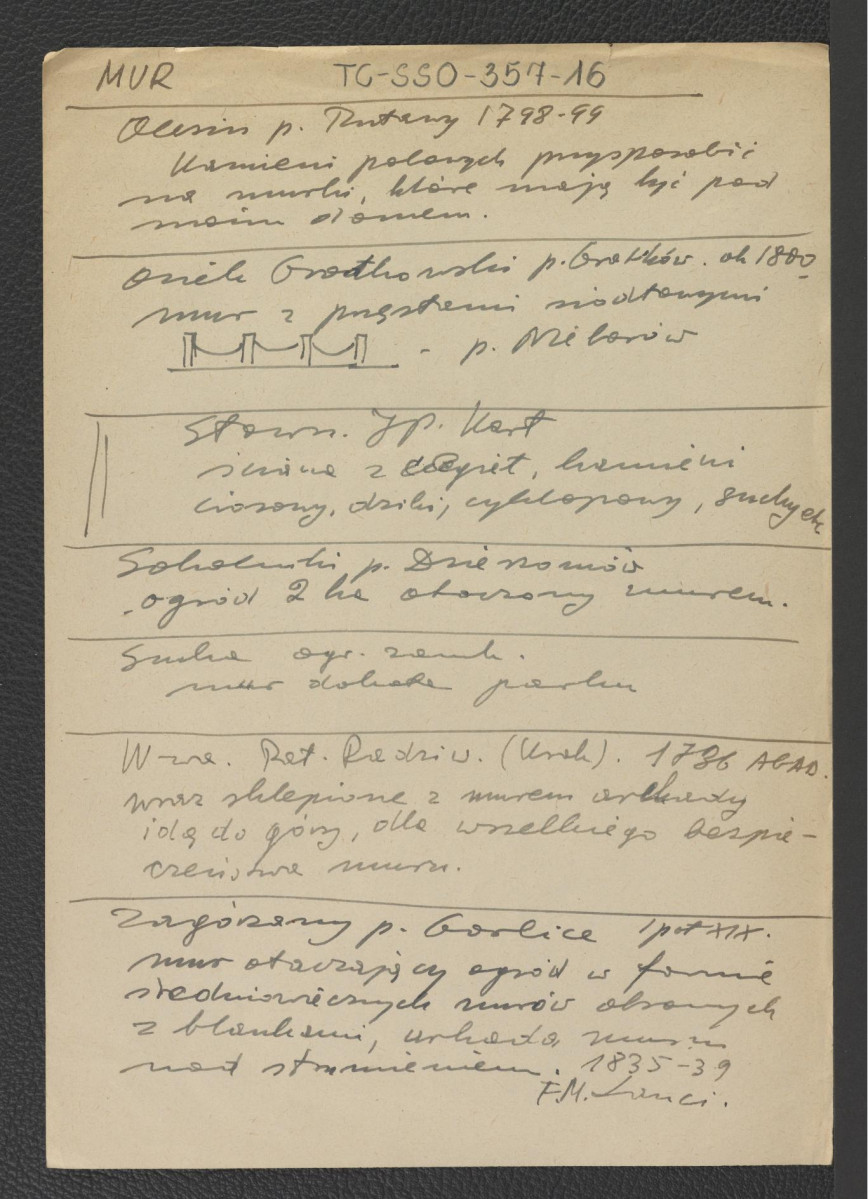 MUR TG-SSO-357-16
Olesin p. Kutawy 1798-99
Kamieni polowych przysposobić
na murki, które mają być pod
moim domem.
Osiek Grodkowski p. Gradków. ok 1800
mur z przęsłami siodłowymi
- p. Mélarów
Słown. JP. Kart
ściana z cegieł, kamieni
ciosany, dziki, cyklopowy, suchy etc
Sokolniki p. Dzierżoniów
ogród 2 ha otoczony murem.
Sucha ogr. zamk.
mur dokoła parku
W-wa. Pał. Radziw. (Krak). 1786 AGAD.
wraz sklepione z murem arkady
idą do góry, dla wszelkiego bezpie-
czeństwa muru.
Zagórzany p. Gorlice I poł XIX.
mur otaczający ogród w formie
średniowiecznych murów obronnych
z blankami, arkada muru
nad strumieniem. 1835-39
F.M. Lanci.